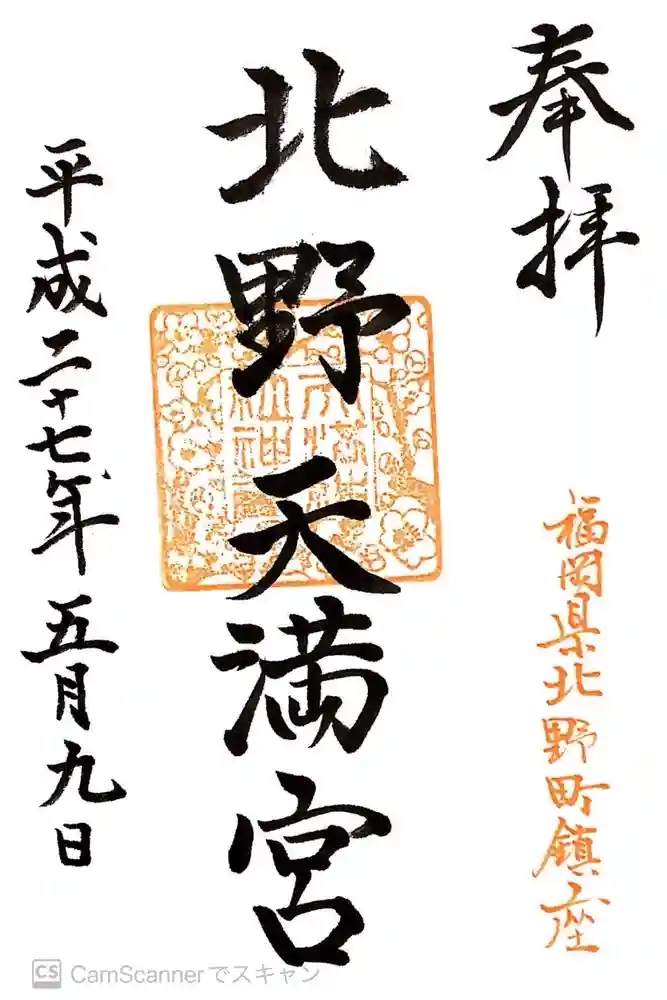 奉拝
福岡県北野町鎮座
北野天満宮
平成二十七年五月九日
CS CamScannerでスキャン